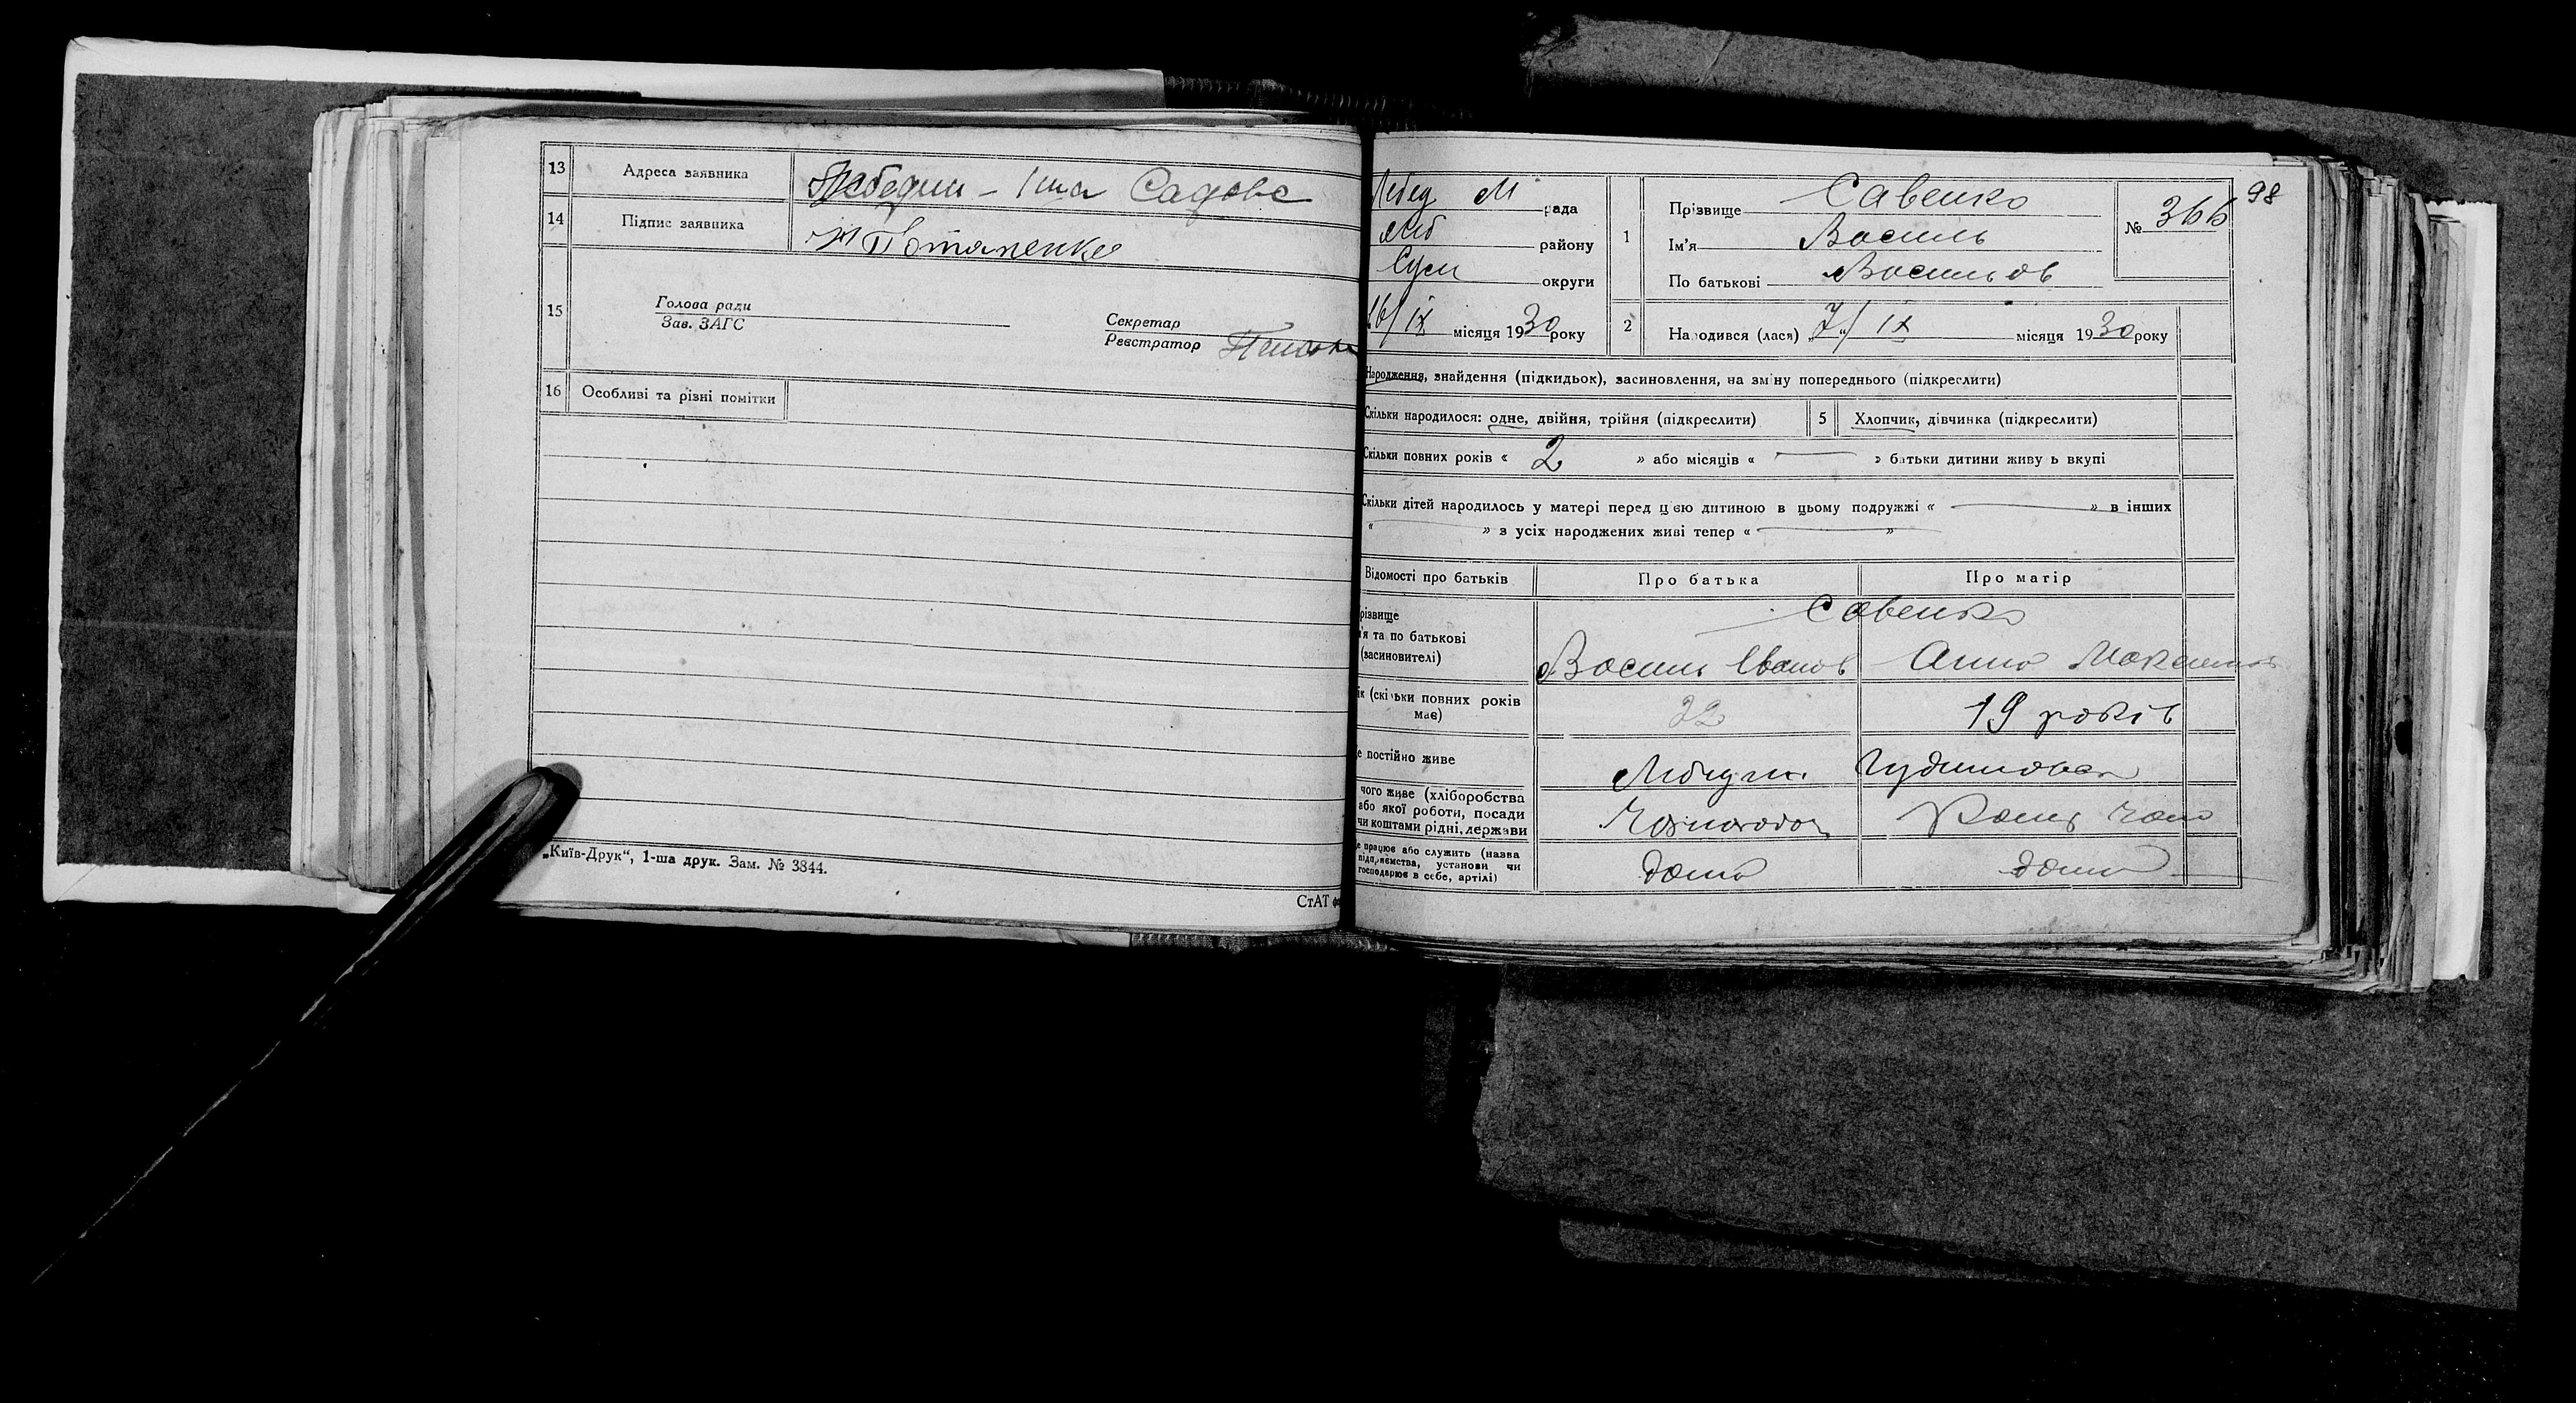 13 Адреса заявника Лебедин – 1ша Садова
14 Підпис заявника Потапенко
15 Голова ради
Зав. ЗАГС
Секретар
Реєстратор
16 Особливі та різні помітки
„Київ-Друк“, 1-ша друк. Зам. № 3844.
СтАТ
98
Лебед М рада
Леб району
Сум округи
16/IX місяця 1930 року
1 Прізвище Савенко
Ім'я Василь
По батькові Васильов
№ 366
2 Народився (лася) „7“/ IX місяця 1930 року
Народження, знайдення (підкидьок), засиновлення, на зміну попереднього (підкреслити)
Скільки народилося: одне, двійня, трійня (підкреслити) 5 Хлопчик, дівчинка (підкреслити)
Скільки повних років « 2 » або місяців « — » батьки дитини живу ь вкупі
Скільки дітей народилось у матері перед цією дитиною в цьому подружжі « — » в інших
« — » з усіх народжених живі тепер « — »
Відомості про батьків Про батька Про матір
різвище
'я та по батькові
(васиновителі)
Савенко
Василь Іванов Анна Максимов
ік (скільки повних років
має)
32 19 років
е постійно живе Лебедин
чого живе (хліборобства
або якої роботи, посади
чи коштами рідні, держави
е працює або служить (назва
підприємства, установи чи
господарює в себе, артілі)
дома дома